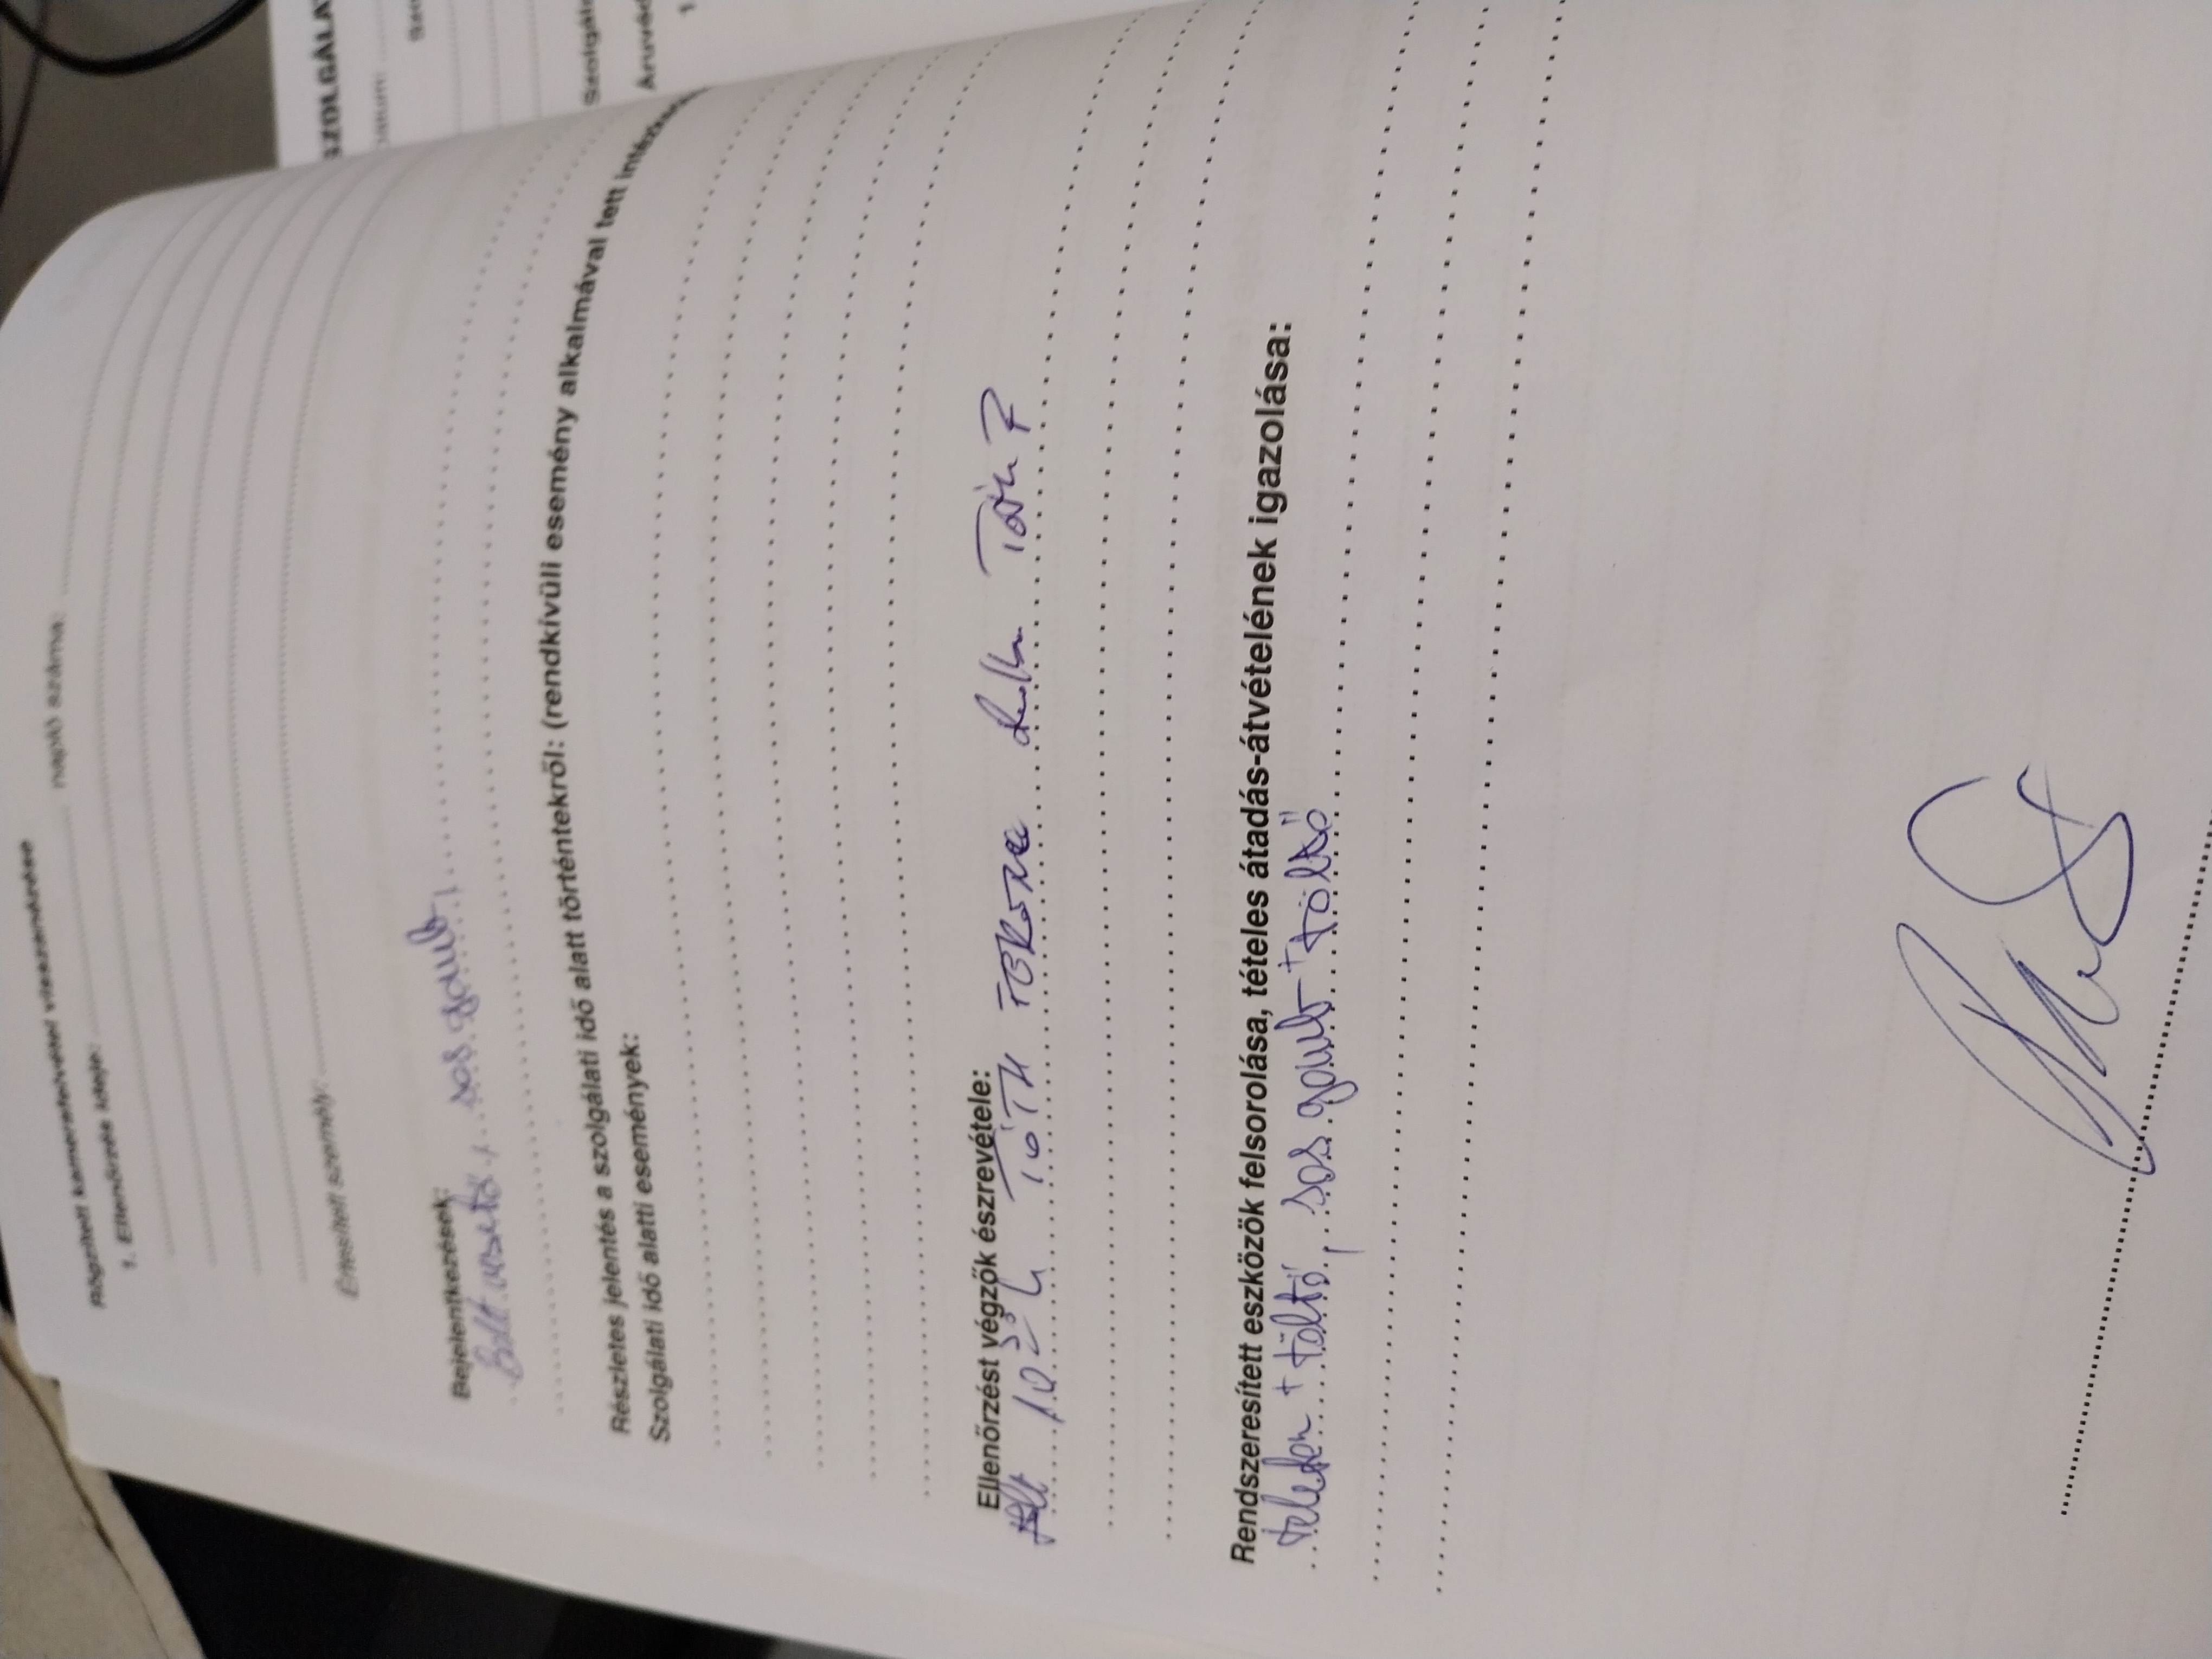 Rögzített kamerafelvétel visszanézése napló száma:
1. Ellenőrzés ideje:
Értesített személy:
Bejelentkezések:
Bolt vezető, sos gomb
Részletes jelentés a szolgálati idő alatt történtekről: (rendkívüli esemény alkalmával tett
Szolgálati idő alatti események:
Ellenőrzést végzők észrevétele:
10 30 h TÓTH
Rendszeresített eszközök felsorolása, tételes átadás-átvételének igazolása:
telefon + töltő, sos gomb + töltő
SZOLGÁLA
Szolgála
Áruvéd
1